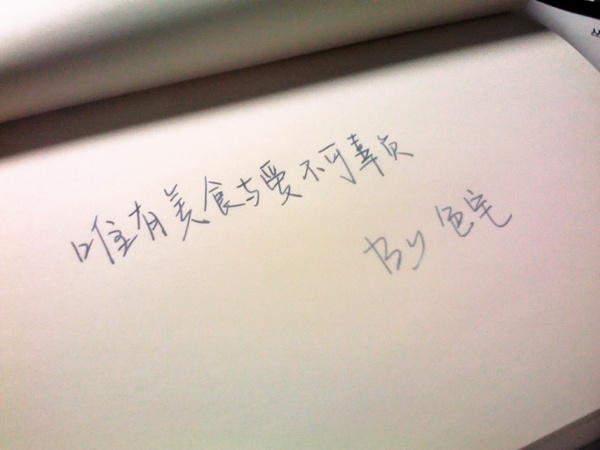 唯有美食与爱不可辜负
By 色宅